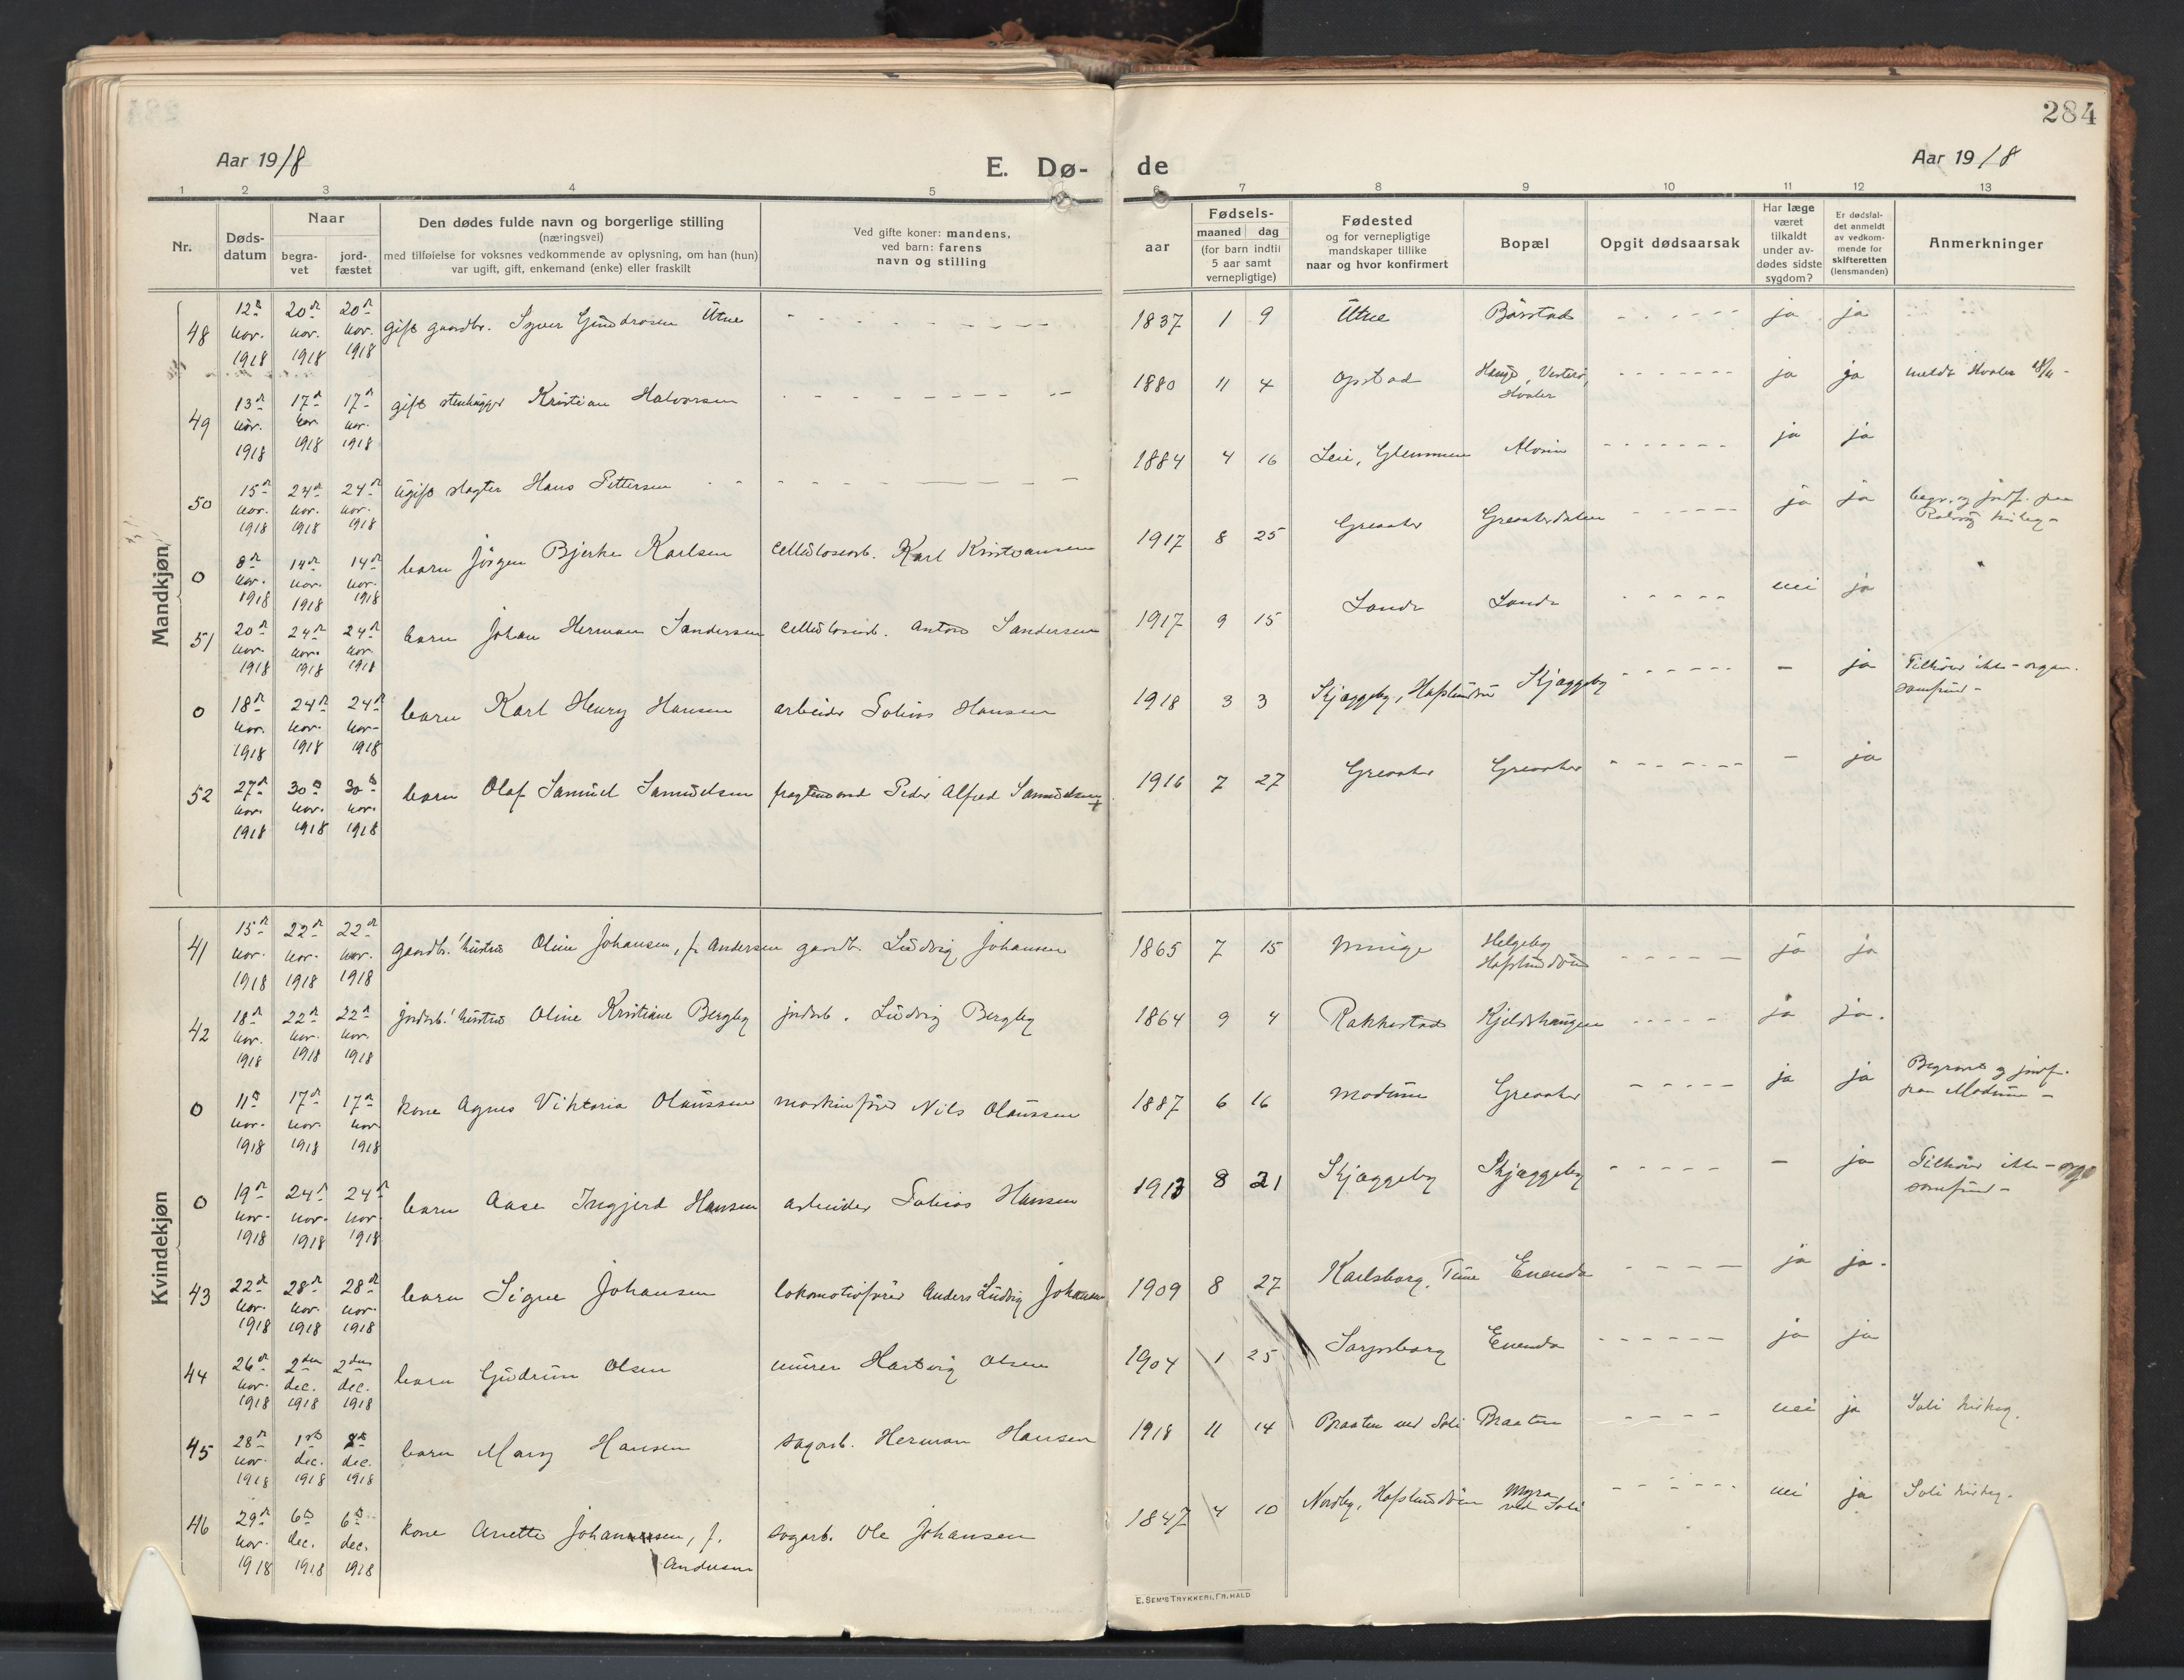 284
Aar 1918
E. Dø-
de
Aar 1918
1 2 3 4 5 6 7 8 9 10 11 12 13
Nr.
Døds-
datum
Naar
begra-
vet
jord-
fæstet
Den dødes fulde navn og borgerlige stilling
(næringsvei)
med tilføielse for voksnes vedkommende av oplysning, om han (hun)
var ugift, gift, enkemand (enke) eller fraskilt
Ved gifte koner: mandens,
ved barn: farens
navn og stilling
aar
Fødsels-
maaned dag
(for barn indtil
5 aar samt
vernepligtige)
Fødested
og for vernepligtige
mandskaper tillike
naar og hvor konfirmert
Bopæl
Opgit dødsaarsak
Har læge
været
tilkaldt
under av-
dødes sidste
sygdom?
Er dødsfal-
det anmeldt
av vedkom-
mende for
skifteretten
(lensmanden)
Anmerkninger
Mandkjøn
48 12te nov. 1918 20de nov. 1918 20de nov. 1918 gift gaardbr. Syver Gundrosen Utne 1837 1 9 Utne Borstad ja ja
49 13de nov. 1918 17de nov. 1918 17de nov. 1918 gift stenhugger Kristian Halvorsen 1880 11 4 Opstad Vesterø, Hvaler ja ja meldt Hvaler
50 15de nov. 1918 24de nov. 1918 24de nov. 1918 ugift slagter Hans Pettersen 1884 4 16 Leie, Glemmen Alvim ja ja
0 8de nov. 1918 14de nov. 1918 14de nov. 1918 barn Jørgen Bjerke Karlsen cellulosearb. Karl Kristiansen 1917 8 25 Greaaker Greaakerdalen ja ja begr. og jordf. paa Rolvsøy kirkeg.
51 20de nov. 1918 24de nov. 1918 24de nov. 1918 barn Johan Herman Sandersen cellulosearb. Anton Sandersen 1917 9 15 Lande Lande nei ja
0 18de nov. 1918 24de nov. 1918 24de nov. 1918 barn Karl Henry Hansen arbeider Tobias Hansen 1918 3 3 Skjæggeby, Hafslundsøen Skjæggeby - ja Tilhører ikke-organ. samfund-
52 27de nov. 1918 30te nov. 1918 30te nov. 1918 barn Olaf Samuel Samuelsen fragtemand Peder Alfred Samuelsen 1916 7 27 Greaaker Greaaker - ja
Kvindekjøn
41 15de nov. 1918 22de nov. 1918 22de nov. 1918 gaardbr.' hustru Oline Johansen, f. Andersen gaardb. Ludvig Johansen 1865 7 15 Minige Helgeby Hafslundsøen ja ja
42 18de nov. 1918 22de nov. 1918 22de nov. 1918 jordarb.' hustru Oline Kristiane Bergby jordarb. Ludvig Bergby 1864 9 4 Rakkestad Kjeldshaugen ja ja.
0 11te nov. 1918 17de nov. 1918 17de nov. 1918 kone Agnes Viktoria Olaussen maskinfører Nils Olaussen 1887 6 16 Modum Greaaker ja ja Begravet og jordf. paa Modum -
0 19de nov. 1918 24de nov. 1918 24de nov. 1918 barn Aase Ingjerd Hansen arbeider Tobias Hansen 1913 8 21 Skjæggeby Skjæggeby - ja Tilhører ikke-orga samfund-
43 22de nov. 1918 28de nov. 1918 28de nov. 1918 barn Signe Johansen lokomotivfører Anders Ludvig Johansen 1909 8 27 Karlsborg, Tune Enenda ja ja.
44 26de nov. 1918 2den dec. 1918 2den dec. 1918 barn Gudrun Olsen murer Hartvig Olsen 1904 1 25 Sarpsborg Enenda ja ja
45 28de nov. 1918 1ste dec. 1918 dec. 1918 barn Mary Hansen sagarb. Herman Hansen 1918 11 14 Braaten ved Soli Braaten nei ja Soli kirkeg.
46 29de nov. 1918 6te dec. 1918 6te dec. 1918 kone Anette Johansen, f. Andersen sagarb. Ole Johansen 1847 4 10 Nordby, Hafslundsøen Myra ved Soli nei ja Soli kirkeg.
E. SEM'S TRYKKERI, FR.HALD